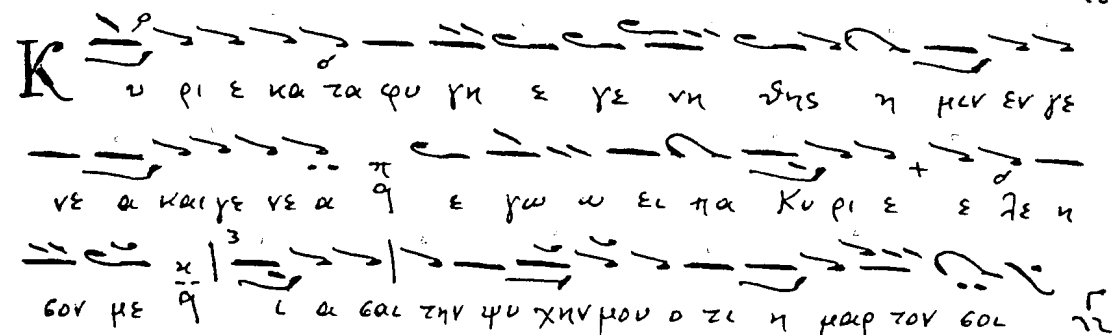 Κ υ ρι ε κα τα φυ γη ε γε νη θης η μιν εν γε
νε α και γε νε α π q ε γω ω ει πα Κυ ρι ε ε λε η
σον με q 3 ι α σαι την ψυ χην μου ο τι η μαρ τον σοι